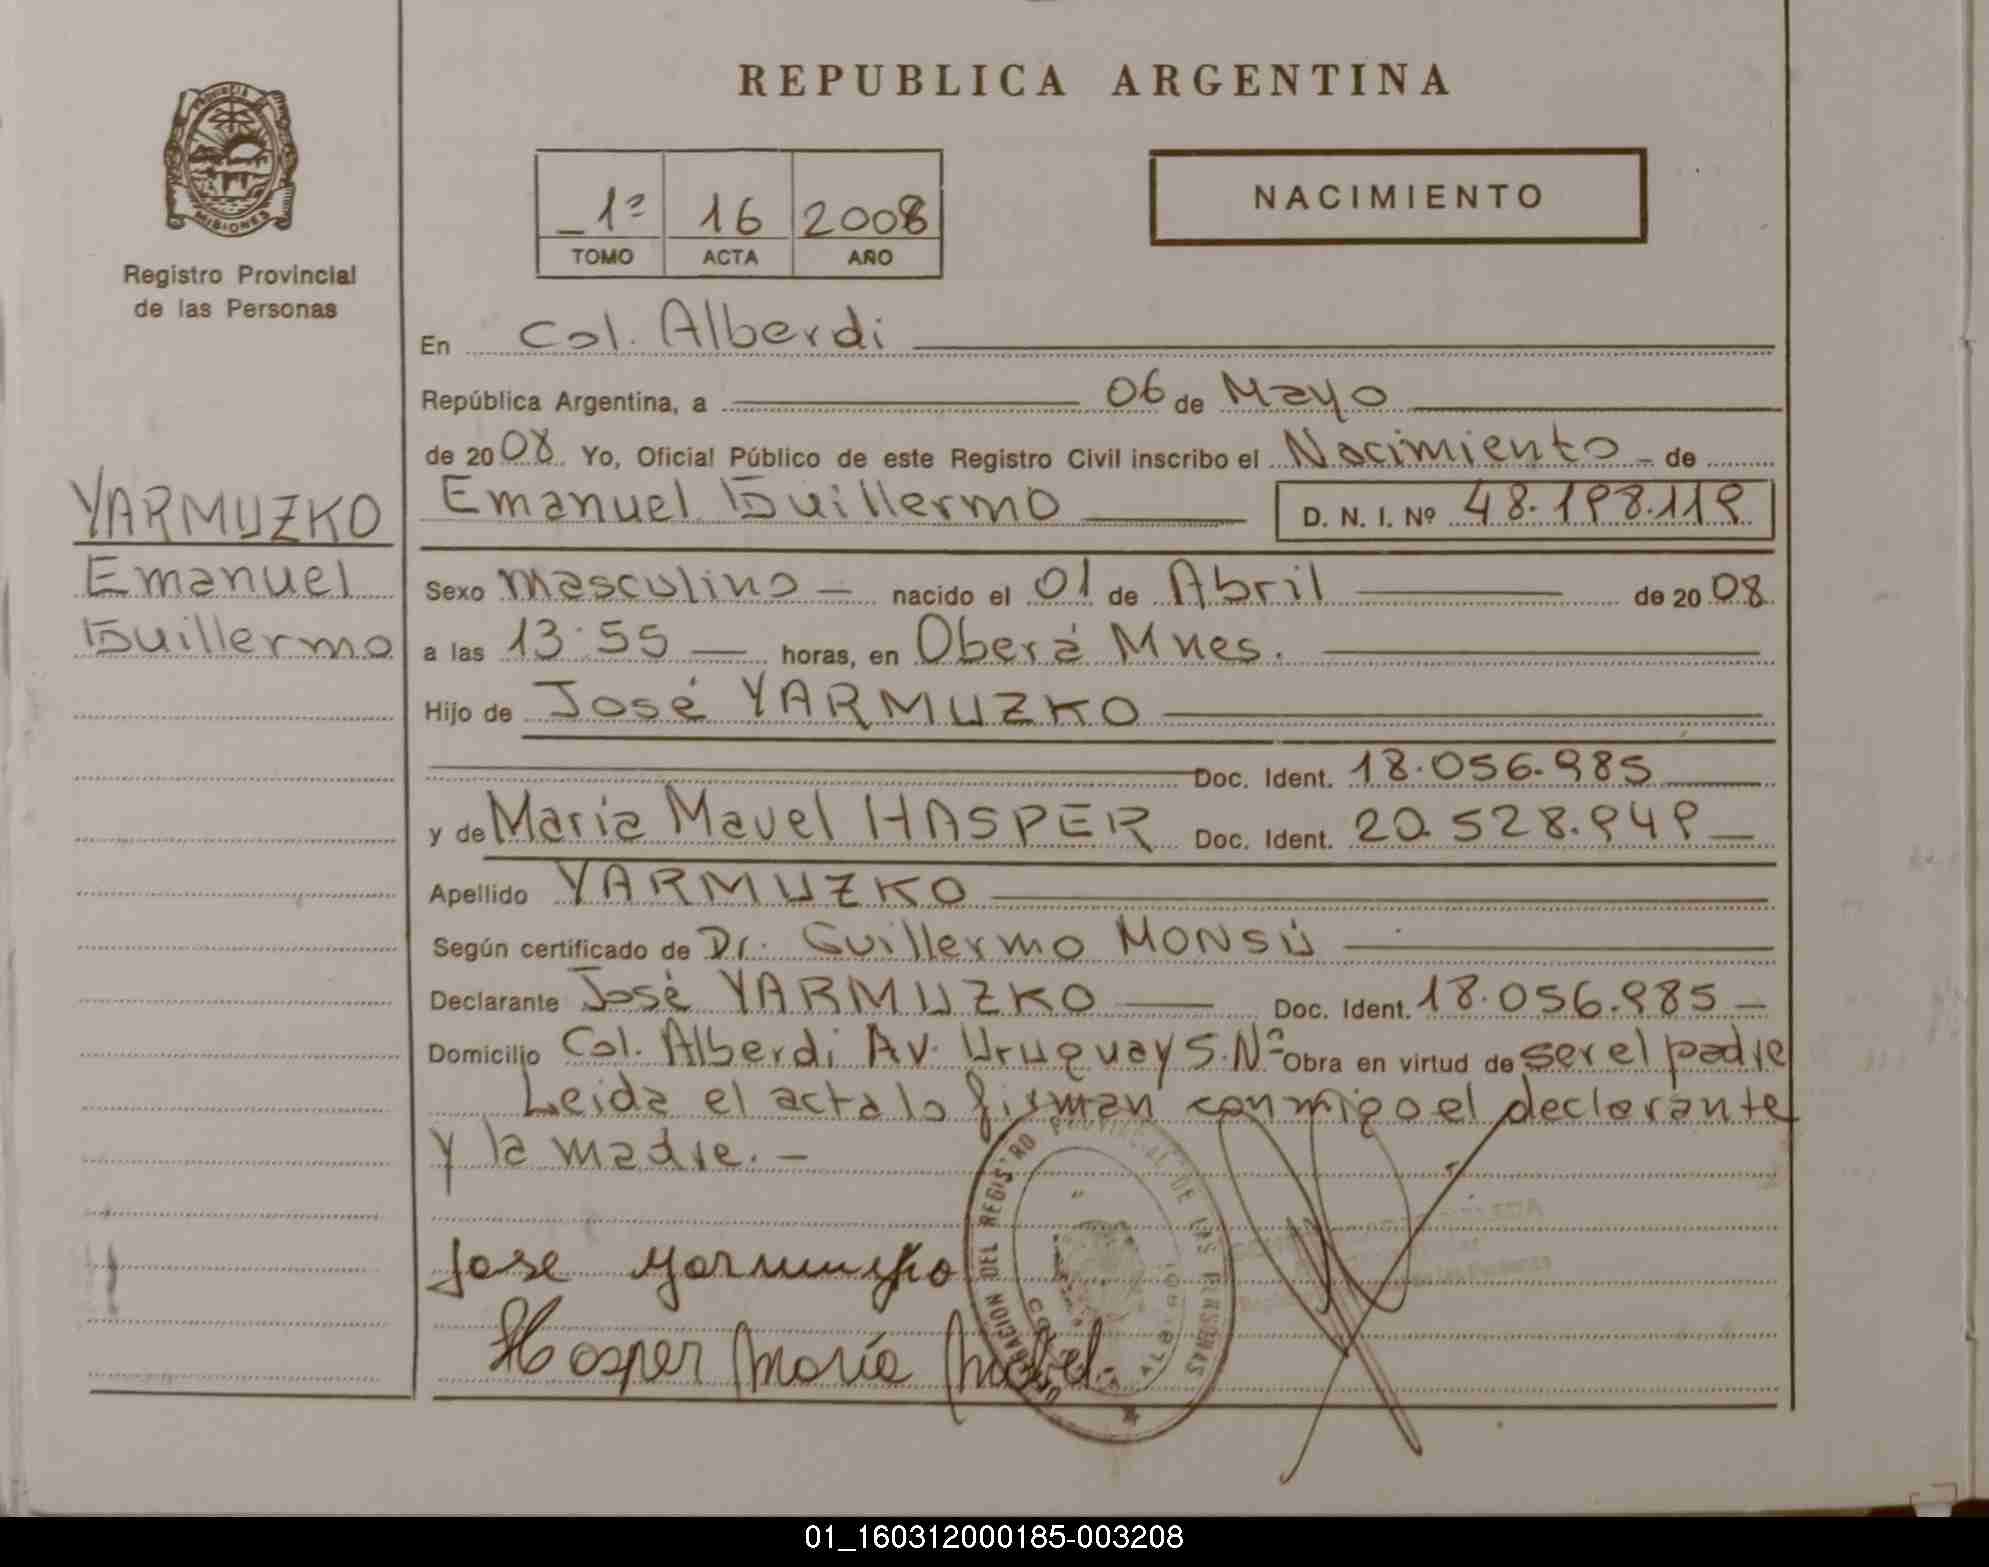 REPUBLICA ARGENTINA
PROVINCIA DE MISIONES
Registro Provincial
de las Personas
1º 16 2008
TOMO ACTA AÑO
NACIMIENTO
YARMUZKO
Emanuel
Guillermo
En Col. Alberdi
República Argentina, a 06 de Mayo
de 2008. Yo, Oficial Público de este Registro Civil inscribo el Nacimiento de
Emanuel Guillermo D. N. I. Nº 48.198.119
Sexo masculino nacido el 01 de Abril de 2008
a las 13:55 horas, en Oberá Mnes.
Hijo de José YARMUZKO
Doc. Ident. 18.056.985
y de María Mavel HASPER Doc. Ident. 20.528.949
Apellido YARMUZKO
Según certificado de Dr. Guillermo MONSÚ
Declarante José YARMUZKO Doc. Ident. 18.056.985
Domicilio Col. Alberdi Av. Uruguay S.Nº Obra en virtud de ser el padre
Leida el acta lo firman conmigo el declarante
y la madre.-
Jose Yarmuzko
Hasper María Mabel.
DELEGACION DEL REGISTRO PROVINCIAL DE LAS PERSONAS
01_160312000185-003208